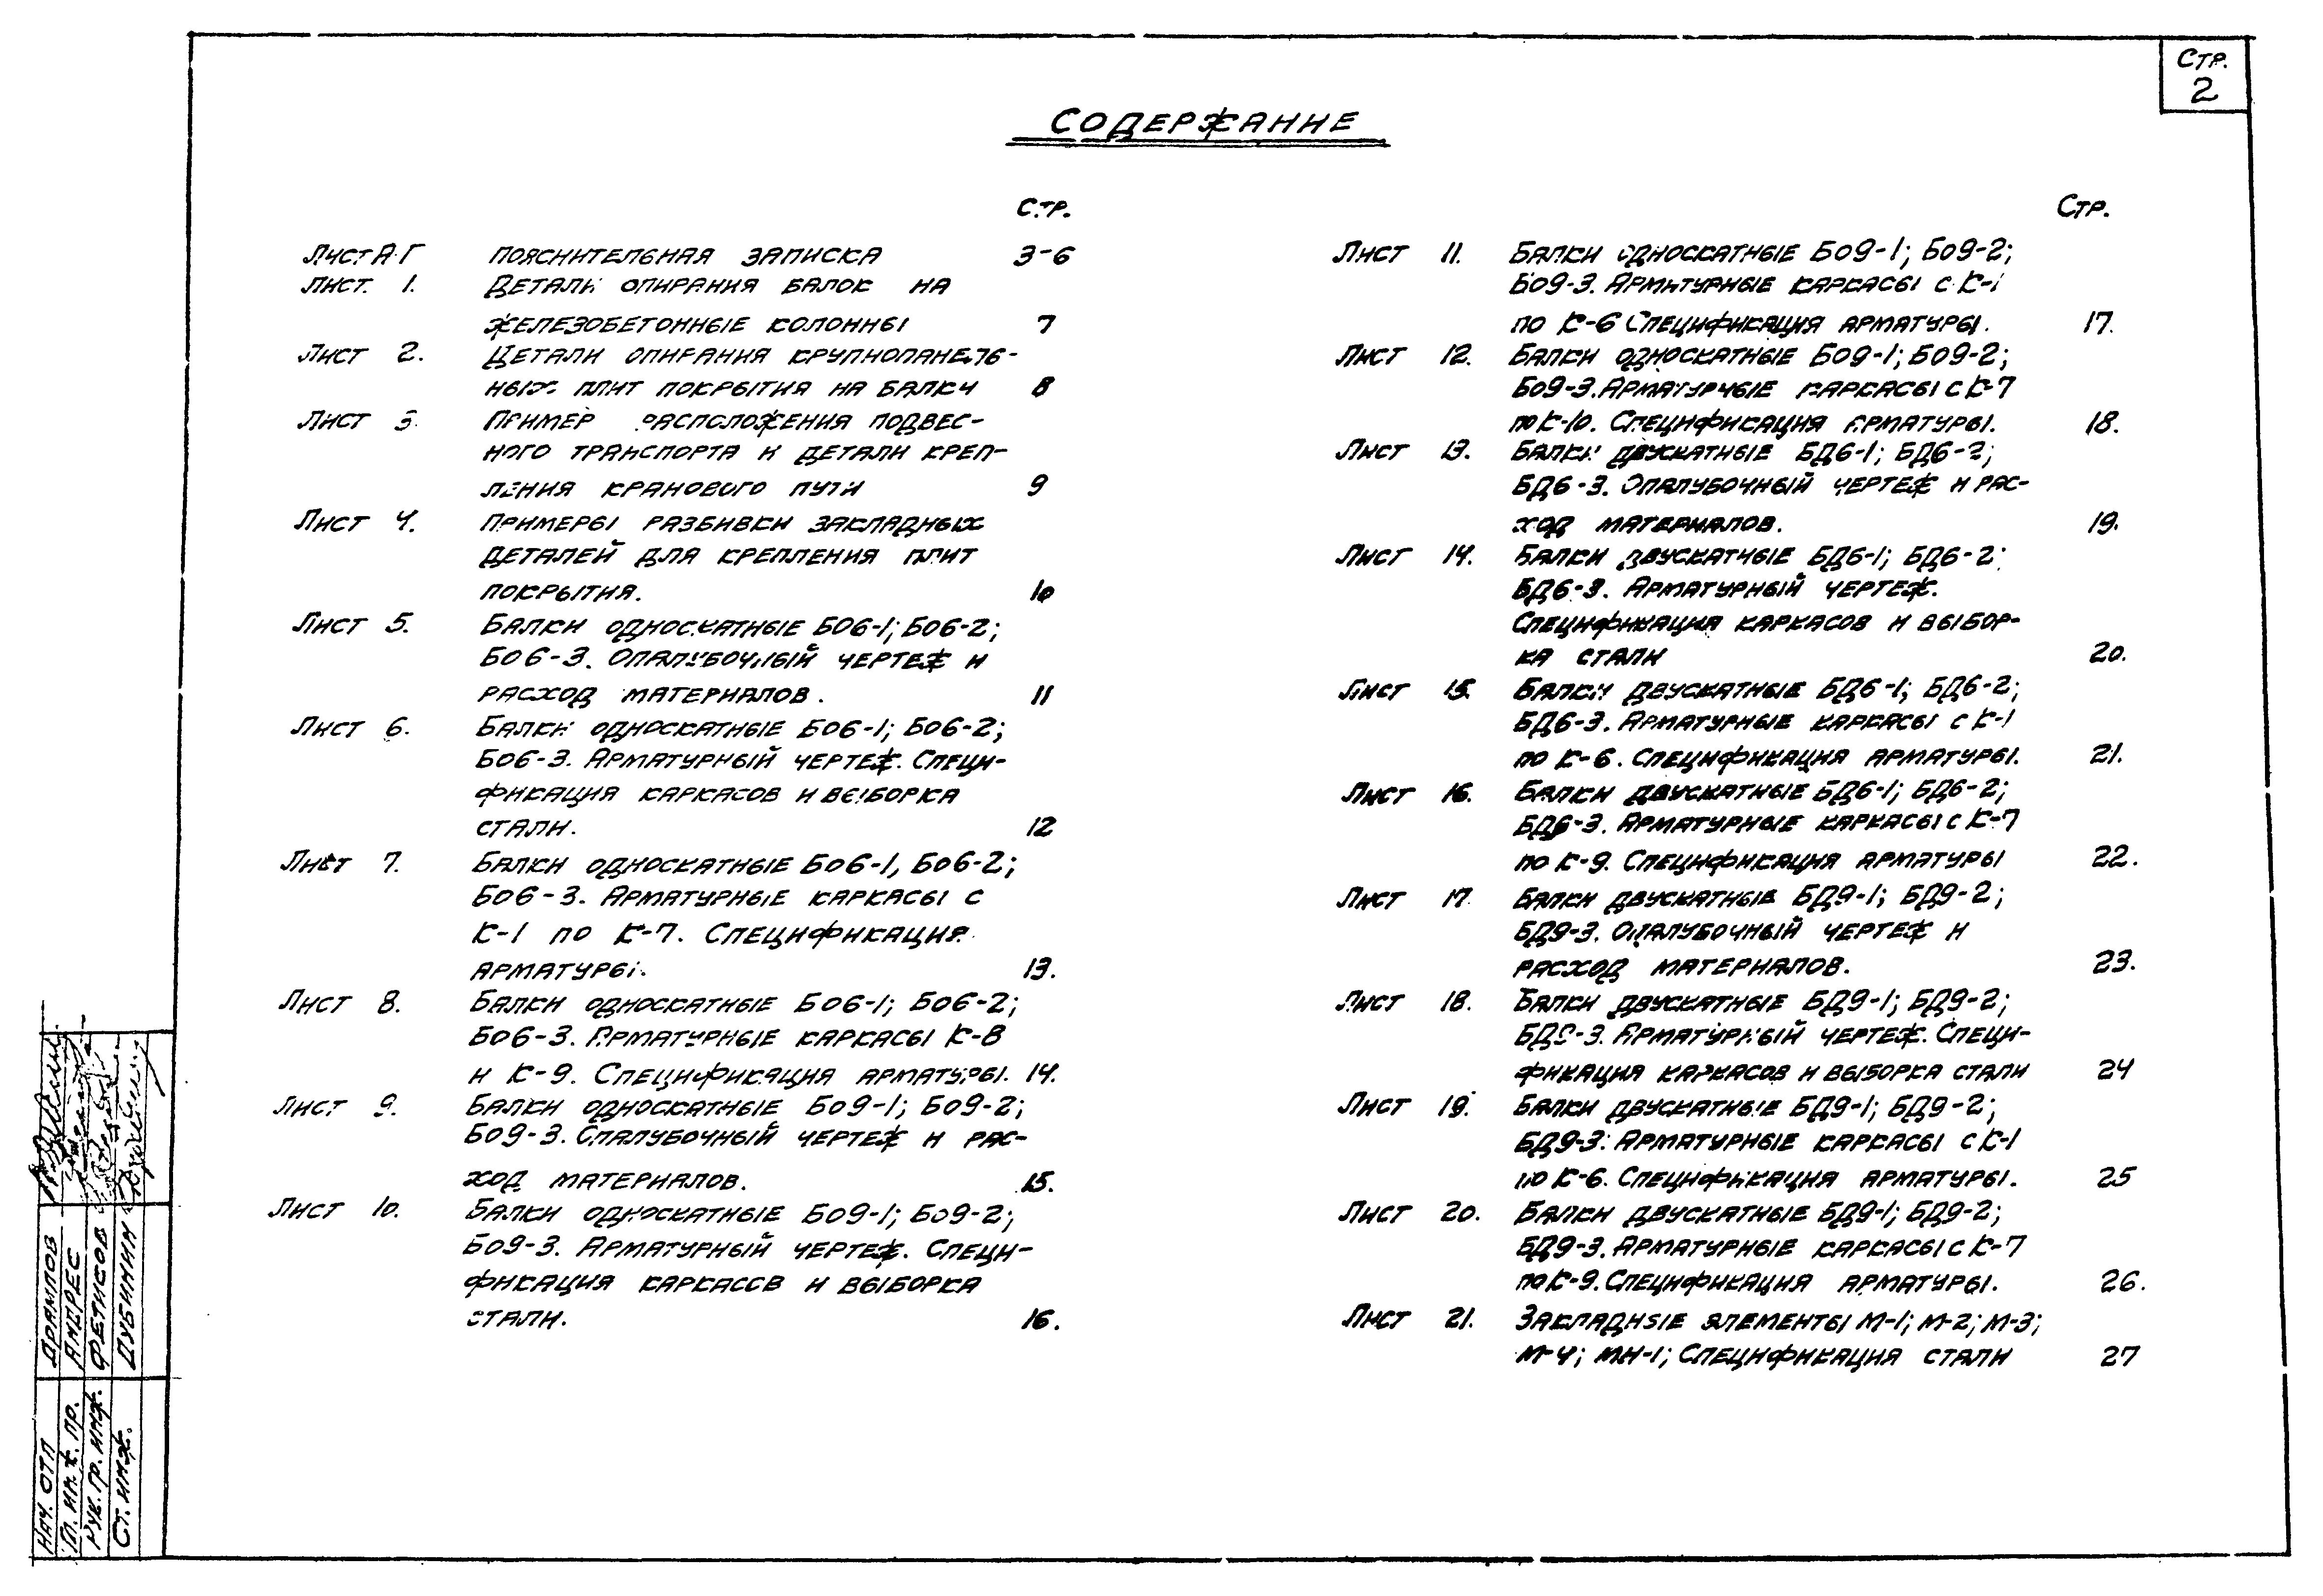 Стр.
2
Содержание
Стр.
Лист А-Г Пояснительная записка 3-6
Лист 1. Детали опирания балок на
железобетонные колонны 7
Лист 2. Детали опирания крупнопанель-
ных плит покрытия на балки 8
Лист 3. Пример расположения подвес-
ного транспорта и детали креп-
ления кранового пути 9
Лист 4. Примеры разбивки закладных
деталей для крепления плит
покрытия. 10
Лист 5. Балки односкатные Б06-1; Б06-2;
Б06-3. Опалубочный чертеж и
расход материалов. 11
Лист 6. Балки односкатные Б06-1; Б06-2;
Б06-3. Арматурный чертеж. Специ-
фикация каркасов и выборка
стали. 12
Лист 7. Балки односкатные Б06-1, Б06-2;
Б06-3. Арматурные каркасы с
К-1 по К-7. Спецификация
арматуры. 13.
Лист 8. Балки односкатные Б06-1; Б06-2;
Б06-3. Арматурные каркасы К-8
и К-9. Спецификация арматуры. 14.
Лист 9. Балки односкатные Б09-1; Б09-2;
Б09-3. Опалубочный чертеж и рас-
ход материалов. 15.
Лист 10. Балки односкатные Б09-1; Б09-2;
Б09-3. Арматурный чертеж. Специ-
фикация каркасов и выборка
стали. 16.
Стр.
Лист 11. Балки односкатные Б09-1; Б09-2;
Б09-3. Арматурные каркасы с К-1
по К-6 Спецификация арматуры. 17.
Лист 12. Балки односкатные Б09-1; Б09-2;
Б09-3. Арматурные каркасы с К-7
по К-10. Спецификация арматуры. 18.
Лист 13. Балки двускатные БД6-1; БД6-2;
БД6-3. Опалубочный чертеж и рас-
ход материалов. 19.
Лист 14. Балки двускатные БД6-1; БД6-2;
БД6-3. Арматурный чертеж.
Спецификация каркасов и выбор-
ка стали 20.
Лист 15. Балки двускатные БД6-1; БД6-2;
БД6-3. Арматурные каркасы с К-1
по К-6. Спецификация арматуры. 21.
Лист 16. Балки двускатные БД6-1; БД6-2;
БД6-3. Арматурные каркасы с К-7
по К-9. Спецификация арматуры 22.
Лист 17. Балки двускатные БД9-1; БД9-2;
БД9-3. Опалубочный чертеж и
расход материалов. 23.
Лист 18. Балки двускатные БД9-1; БД9-2;
БД9-3. Арматурный чертеж. Специ-
фикация каркасов и выборка стали 24
Лист 19. Балки двускатные БД9-1; БД9-2;
БД9-3. Арматурные каркасы с К-1
по К-6. Спецификация арматуры. 25
Лист 20. Балки двускатные БД9-1; БД9-2;
БД9-3. Арматурные каркасы с К-7
по К-9. Спецификация арматуры. 26.
Лист 21. Закладные элементы М-1; М-2; М-3;
М-4; МН-1; Спецификация стали 27
Нач. отп Дрампов
Гл. инж. пр. Андрес
Рук. гр. инж. Фетисов
Ст. инж. Дубинин